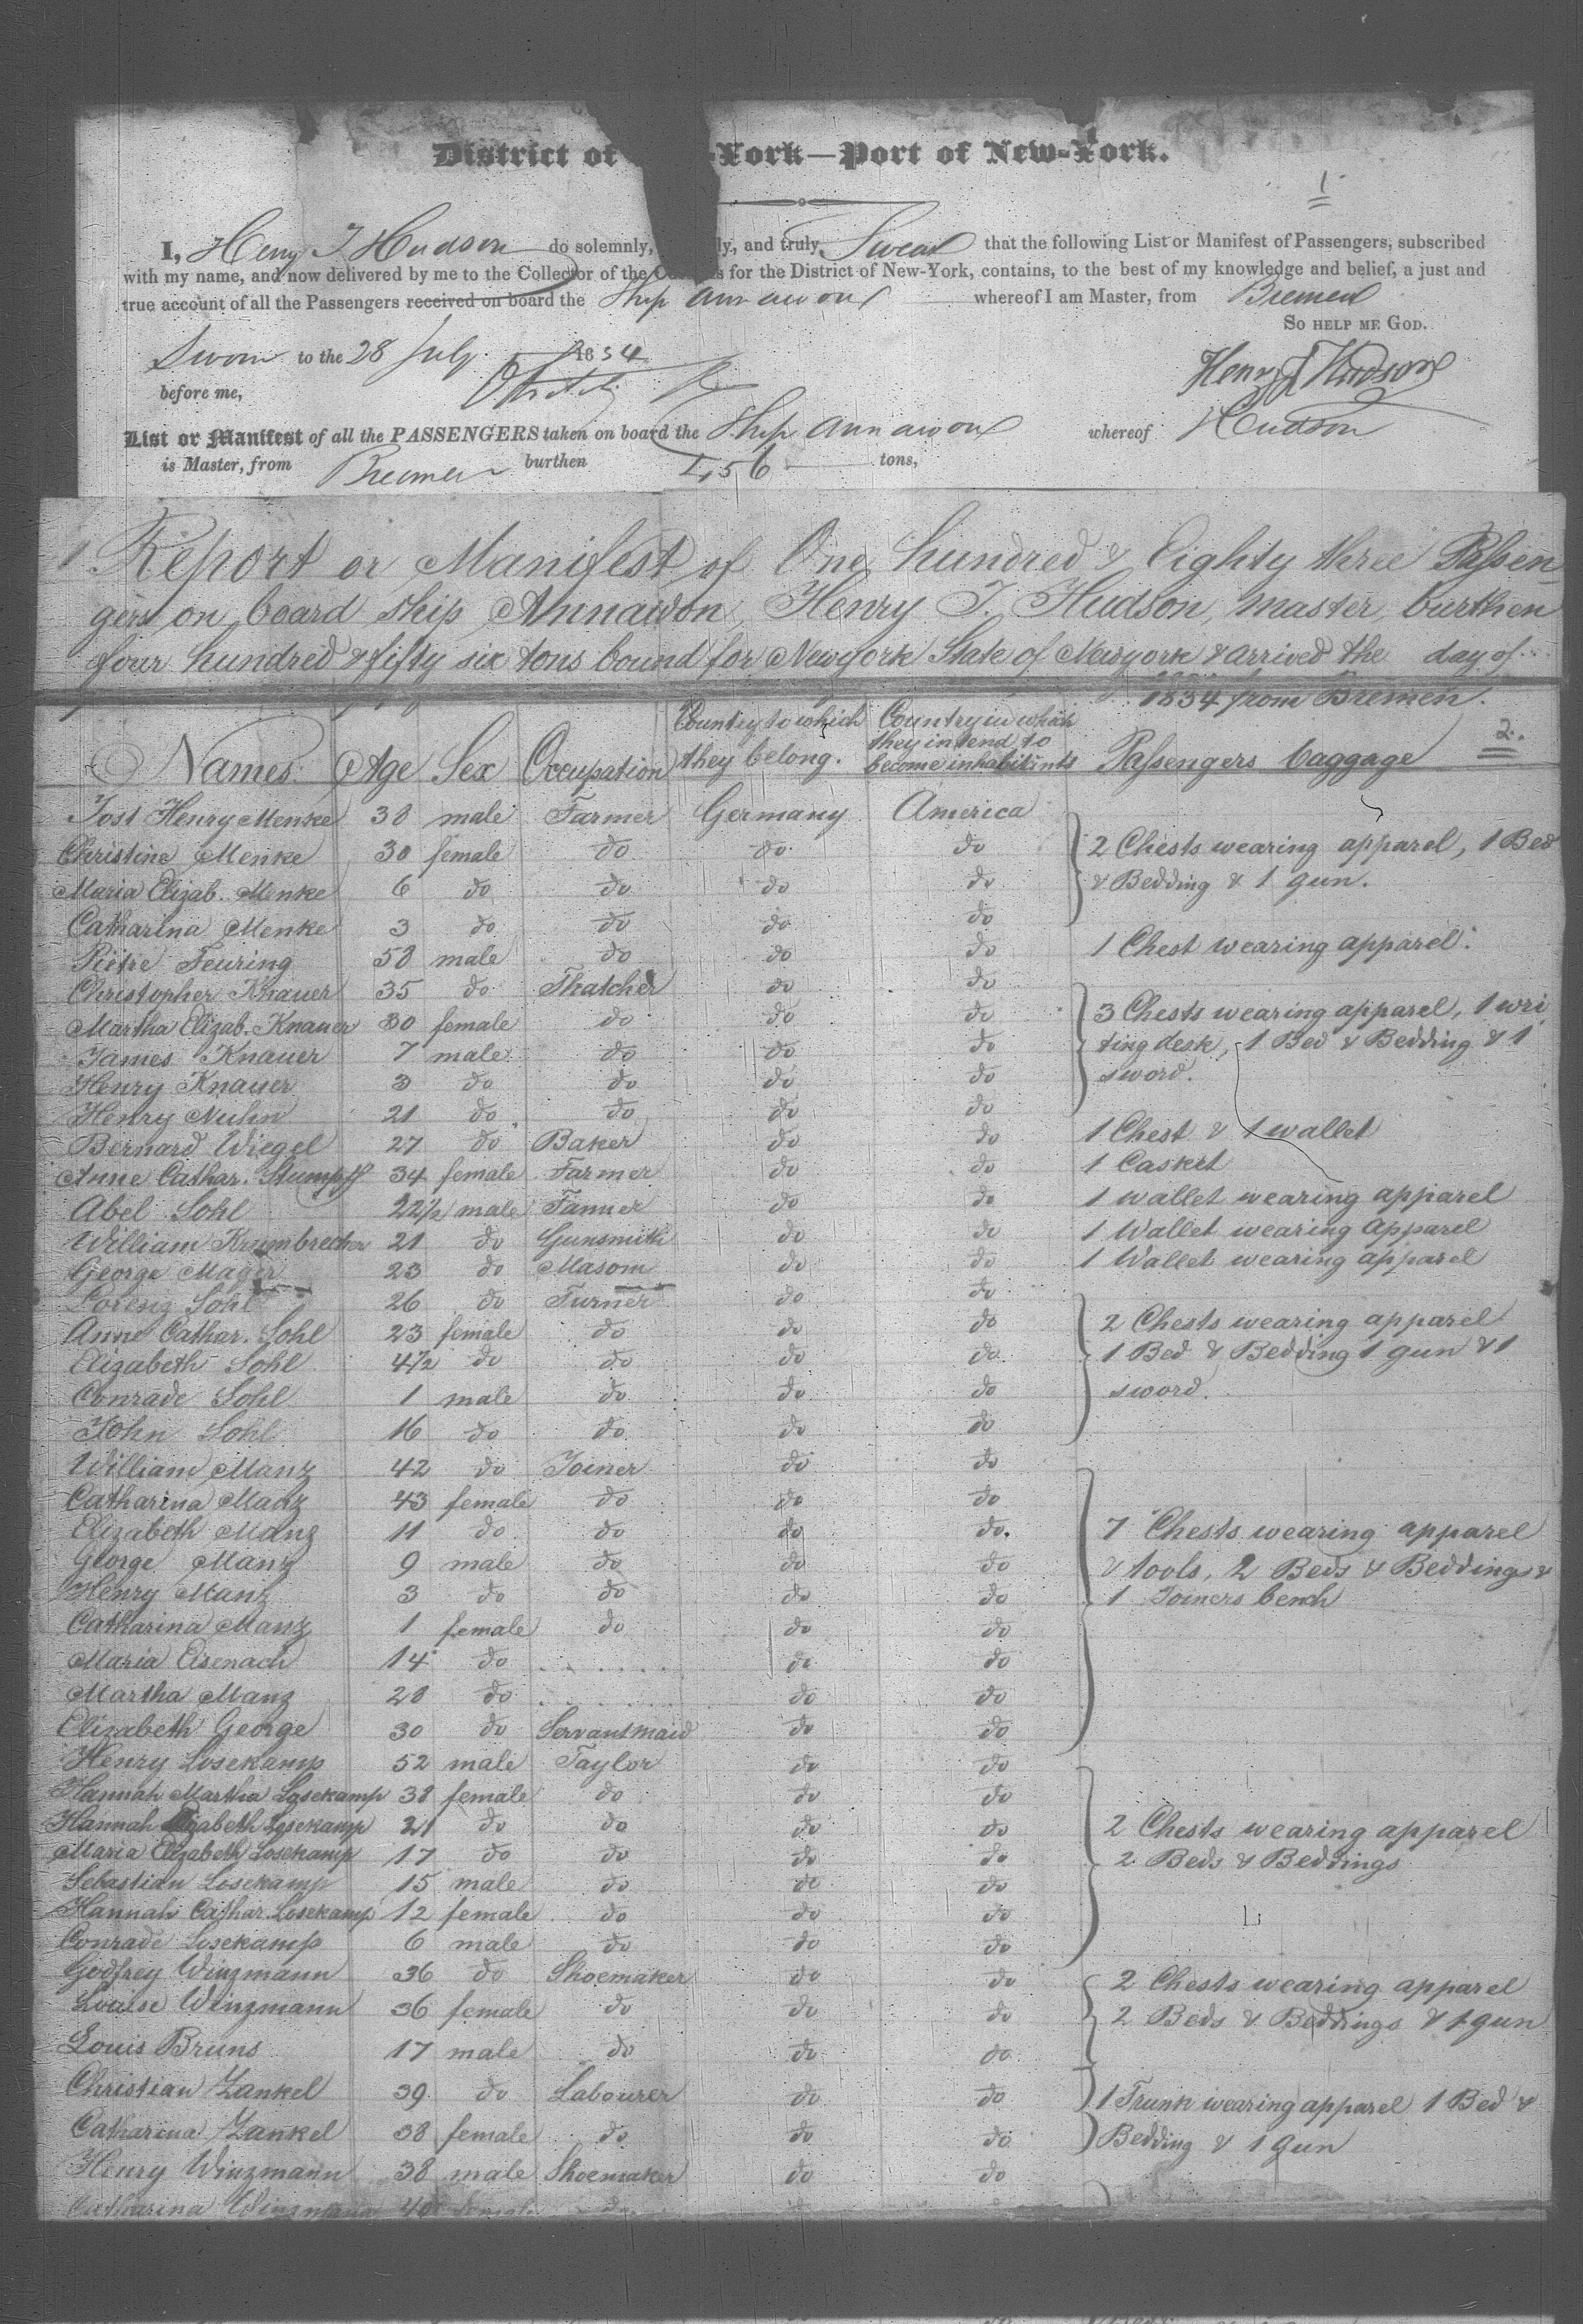 District of -York—Port of New-York.
1
I, Henry J Hudson do solemnly, ly, and truly Swear that the following List or Manifest of Passengers, subscribed
with my name, and now delivered by me to the Collector of the C s for the District of New-York, contains, to the best of my knowledge and belief, a just and
true account of all the Passengers received on board the Ship Annawon whereof I am Master, from Bremen
So help me God.
Sworn to the 28 July 1834
before me,
Henry J Hudson
List or Manifest of all the PASSENGERS taken on board the Ship Annawon whereof Hudson
is Master, from Bremen burthen 456 tons,
1 Report or Manifest of One hundred & Eighty three Passen
gers on board ship Annawon, Henry J. Hudson, master, burthen
four hundred & fifty six tons bound for Newyork State of Newyork & arrived the day of
1834 from Bremen.
Names Age Sex Occupation Country to which they belong. Country in which they intend to become inhabitints Passengers baggage 2.
Jost Henry Menke 38 male Farmer Germany America
Christine Menke 30 female do do do 2 Chests wearing apparel, 1 Bed
Maria Elizab. Menke 6 do do do do & Bedding & 1 gun.
Catharina Menke 3 do do do do
Piëtre Feuring 58 male do do do 1 Chest wearing apparel.
Christopher Knauer 35 do Thatcher do do
Martha Elizab. Knauer 30 female do do do 3 Chests wearing apparel, 1 wri
James Knauer 7 male do do do ting desk, 1 Bed & Bedding & 1
Henry Knauer 3 do do do do sword.
Henry Nuhn 21 do do do do
Bernard Wiegel 27 do Baker do do 1 Chest & 1 wallet
Anne Cathar. Stumpff 34 female Farmer do do 1 Casket
Abel Sohl 22½ male Tanner do do 1 wallet wearing apparel
William Krumbrecher 21 do Gunsmith do do 1 Wallet wearing apparel
George Mager 23 do Masom do do 1 Wallet wearing apparel
Sohl 26 do Turner do do
Anne Cathar. Sohl 23 female do do do 2 Chests wearing apparel
Elizabeth Sohl 4½ do do do do 1 Bed & Bedding 1 gun & 1
Conrade Sohl 1 male do do do sword.
John Sohl 16 do do do do
William Manz 42 do Joiner do do
Catharina Manz 43 female do do do
Elizabeth Manz 11 do do do do. 7 Chests wearing apparel
George Manz 9 male do do do & tools, 2 Beds & Beddings &
Henry Manz 3 do do do do 1 Joiners bench
Catharina Manz 1 female do do do
Maria Eisenach 14 do do do
Martha Manz 28 do do do
Elizabeth George 30 do Servantmaid do do
Henry Losekamp 52 male Taylor do do
Hannah Martha Losekamp 38 female do do do
Hannah Elizabeth Losekamp 21 do do do do 2 Chests wearing apparel
Maria Elizabeth Losekamp 17 do do do do 2 Beds & Beddings
Sebastian Losekamp 15 male do do do
Hannah Cathar. Losekamp 12 female do do do
Conrade Losekamp 6 male do do do
Godfrey Winzmann 36 do Shoemaker do do 2 Chests wearing apparel
Louise Winzmann 36 female do do do 2 Beds & Beddings & 1 gun
Louis Bruns 17 male do do do
Christian Zankel 39 do Labourer do do 1 Trunk wearing apparel 1 Bed &
Catharina Zankel 38 female do do do Bedding & 1 gun
Henry Winzmann 38 male Shoemaker do do
Catharina Winzmann 40 female do